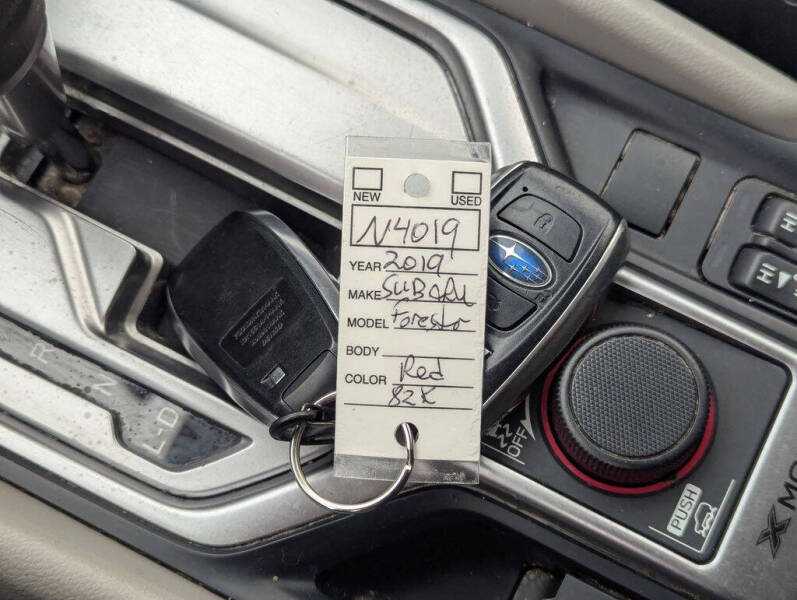 NEW USED
N4019
YEAR 2019
MAKE SUBARU
MODEL Forester
BODY
COLOR Red
82K
R
N
L-D
OFF
PUSH
HI
HI